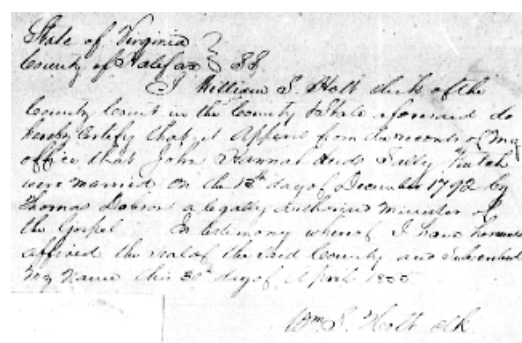 State of Virginia }
County of Halifax } SS.
I William S. Holt clerk of the
County Court in the County & State aforesaid do
hereby Certify that it Appears from the records of my
office that John Hannah and Sally
were married on the 13th day of December 1792 by
Thomas Dobson a legally authorised minister of
the Gospel. In testimony whereof I have hereunto
affixed the seal of the said County and Subscribed
my name this 30th day of April 1855
Wm. S. Holt clk.